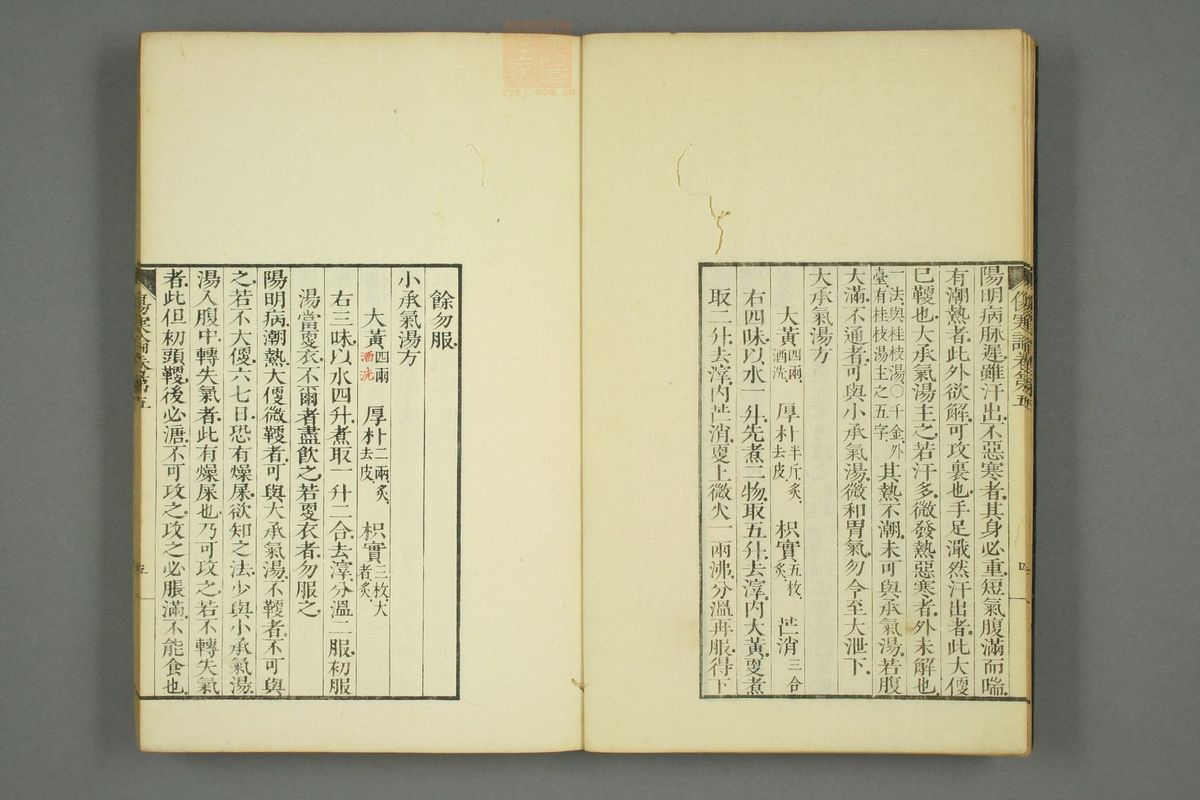 陽明病脉遲雖汗出不惡寒者其身必重短氣腹滿而喘
有潮熱者此外欲解可攻裏也手足濈然汗出者此大便
已鞕也大承氣湯主之若汗多微發熱惡寒者外未解也
一法與桂枝湯○千金外
臺有桂枝湯主之五字
其熱不潮未可與承氣湯若腹
大滿不通者可與小承氣湯微和胃氣勿令至大泄下
大承氣湯方
大黃四兩酒洗 厚朴半斤炙去皮 枳實五枚炙 芒消三合
右四味以水一斗先煮二物取五升去滓內大黃更煮
取二升去滓內芒消更上微火一兩沸分溫再服得下
傷寒論卷第五
四
餘勿服
小承氣湯方
大黃四兩酒洗 厚朴二兩炙去皮 枳實三枚大者炙
右三味以水四升煮取一升二合去滓分溫二服初服
湯當更衣不爾者盡飲之若更衣者勿服之
陽明病潮熱大便微鞕者可與大承氣湯不鞕者不可與
之若不大便六七日恐有燥屎欲知之法少與小承氣湯
湯入腹中轉失氣者此有燥屎也乃可攻之若不轉失氣
者此但初頭鞕後必溏不可攻之攻之必脹滿不能食也
傷寒論卷第五
五
zysj.com.cn